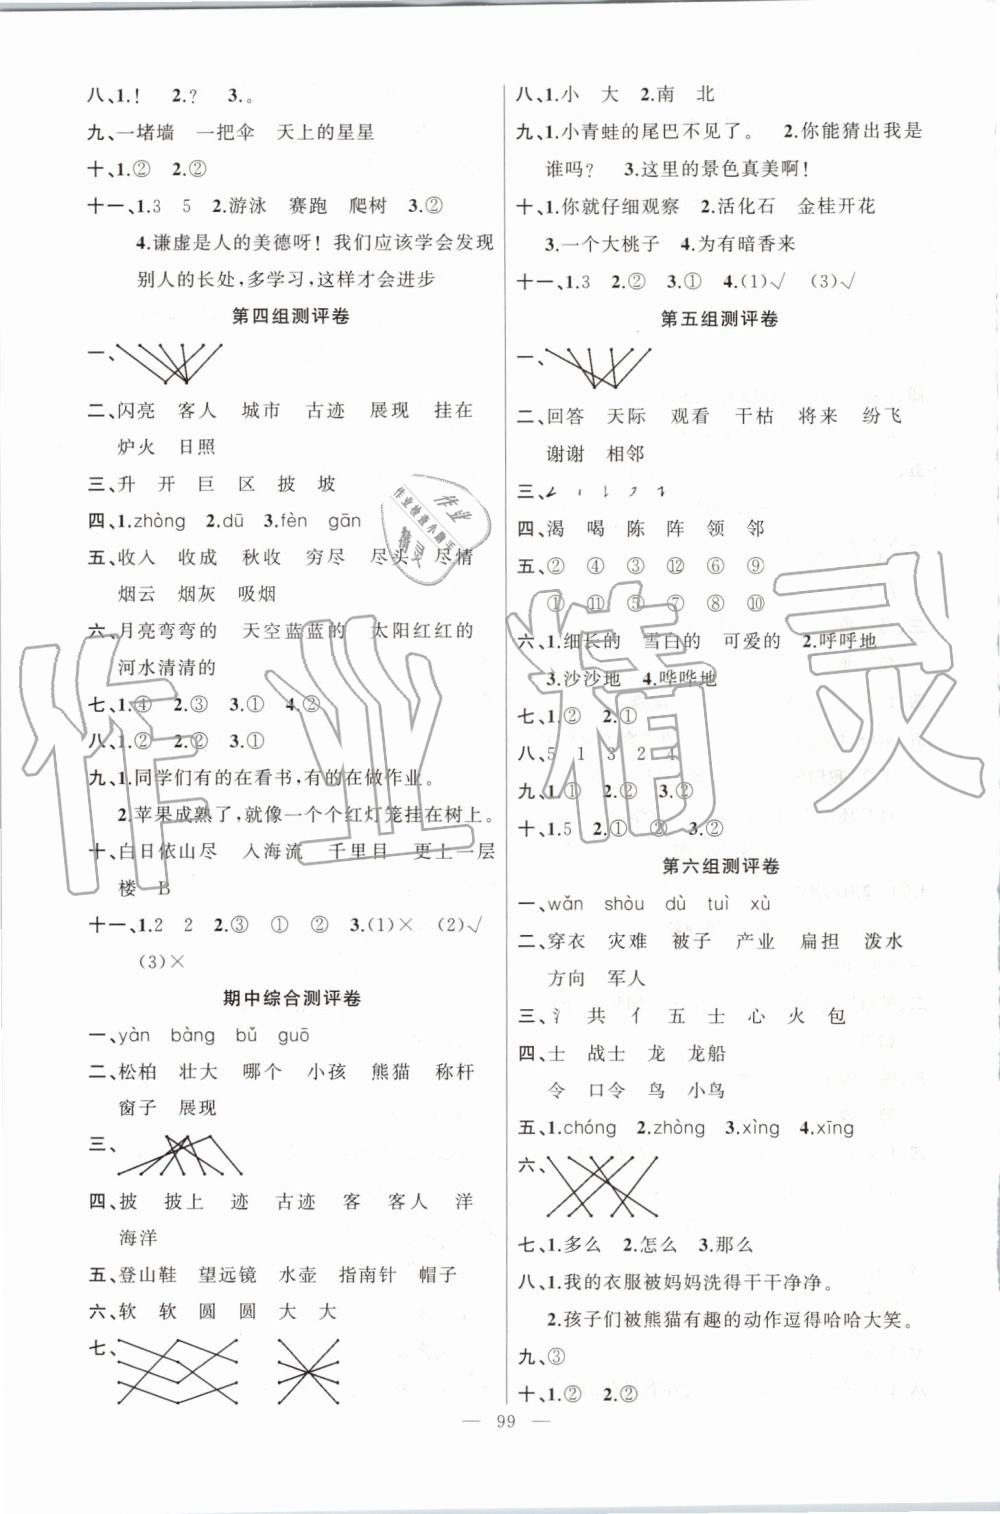 八、1.！ 2.？ 3.。
九、一堵墙 一把伞 天上的星星
十、1.② 2.②
十一、1.3 5 2.游泳 赛跑 爬树 3.②
4.谦虚是人的美德呀！我们应该学会发现
别人的长处，多学习，这样才会进步
第四组测评卷
一、
二、闪亮 客人 城市 古迹 展现 挂在
炉火 日照
三、升 开 巨 区 披 坡
四、1.zhòng 2.dū 3.fèn gān
五、收入 收成 秋收 穷尽 尽头 尽情
烟云 烟灰 吸烟
六、月亮弯弯的 天空蓝蓝的 太阳红红的
河水清清的
七、1.④ 2.③ 3.① 4.②
八、1.② 2.② 3.①
九、1.同学们有的在看书，有的在做作业。
2.苹果成熟了，就像一个个红灯笼挂在树上。
十、白日依山尽 入海流 千里目 更上一层
楼 B
十一、1.2 2 2.③ ① ② 3.(1)× (2)√
(3)×
期中综合测评卷
一、yàn bàng bǔ guō
二、松柏 壮大 哪个 小孩 熊猫 称杆
窗子 展现
三、
四、披 披上 迹 古迹 客 客人 洋
海洋
五、登山鞋 望远镜 水壶 指南针 帽子
六、软 软 圆 圆 大 大
七、
八、1.小 大 2.南 北
九、1.小青蛙的尾巴不见了。 2.你能猜出我是
谁吗？ 3.这里的景色真美啊！
十、1.你就仔细观察 2.活化石 金桂开花
3.一个大桃子 4.为有暗香来
十一、1.3 2.② 3.① 4.(1)√ (3)√
第五组测评卷
一、
二、回答 天际 观看 干枯 将来 纷飞
谢谢 相邻
三、
四、渴 喝 陈 阵 领 邻
五、② ④ ③ ⑫ ⑥ ⑨
① ⑪ ⑤ ⑦ ⑧ ⑩
六、1.细长的 雪白的 可爱的 2.呼呼地
3.沙沙地 4.哗哗地
七、1.② 2.①
八、5 1 3 2 4
九、1.① 2.② 3.②
十、1.5 2.① ② 3.②
第六组测评卷
一、wǎn shòu dù tuì xù
二、穿衣 灾难 被子 产业 扁担 泼水
方向 军人
三、氵 共 亻 五 士 心 火 包
四、士 战士 龙 龙船
令 口令 鸟 小鸟
五、1.chóng 2.zhòng 3.xìng 4.xīng
六、
七、1.多么 2.怎么 3.那么
八、1.我的衣服被妈妈洗得干干净净。
2.孩子们被熊猫有趣的动作逗得哈哈大笑。
九、③
十、1.② 2.②
— 99 —
作业精灵